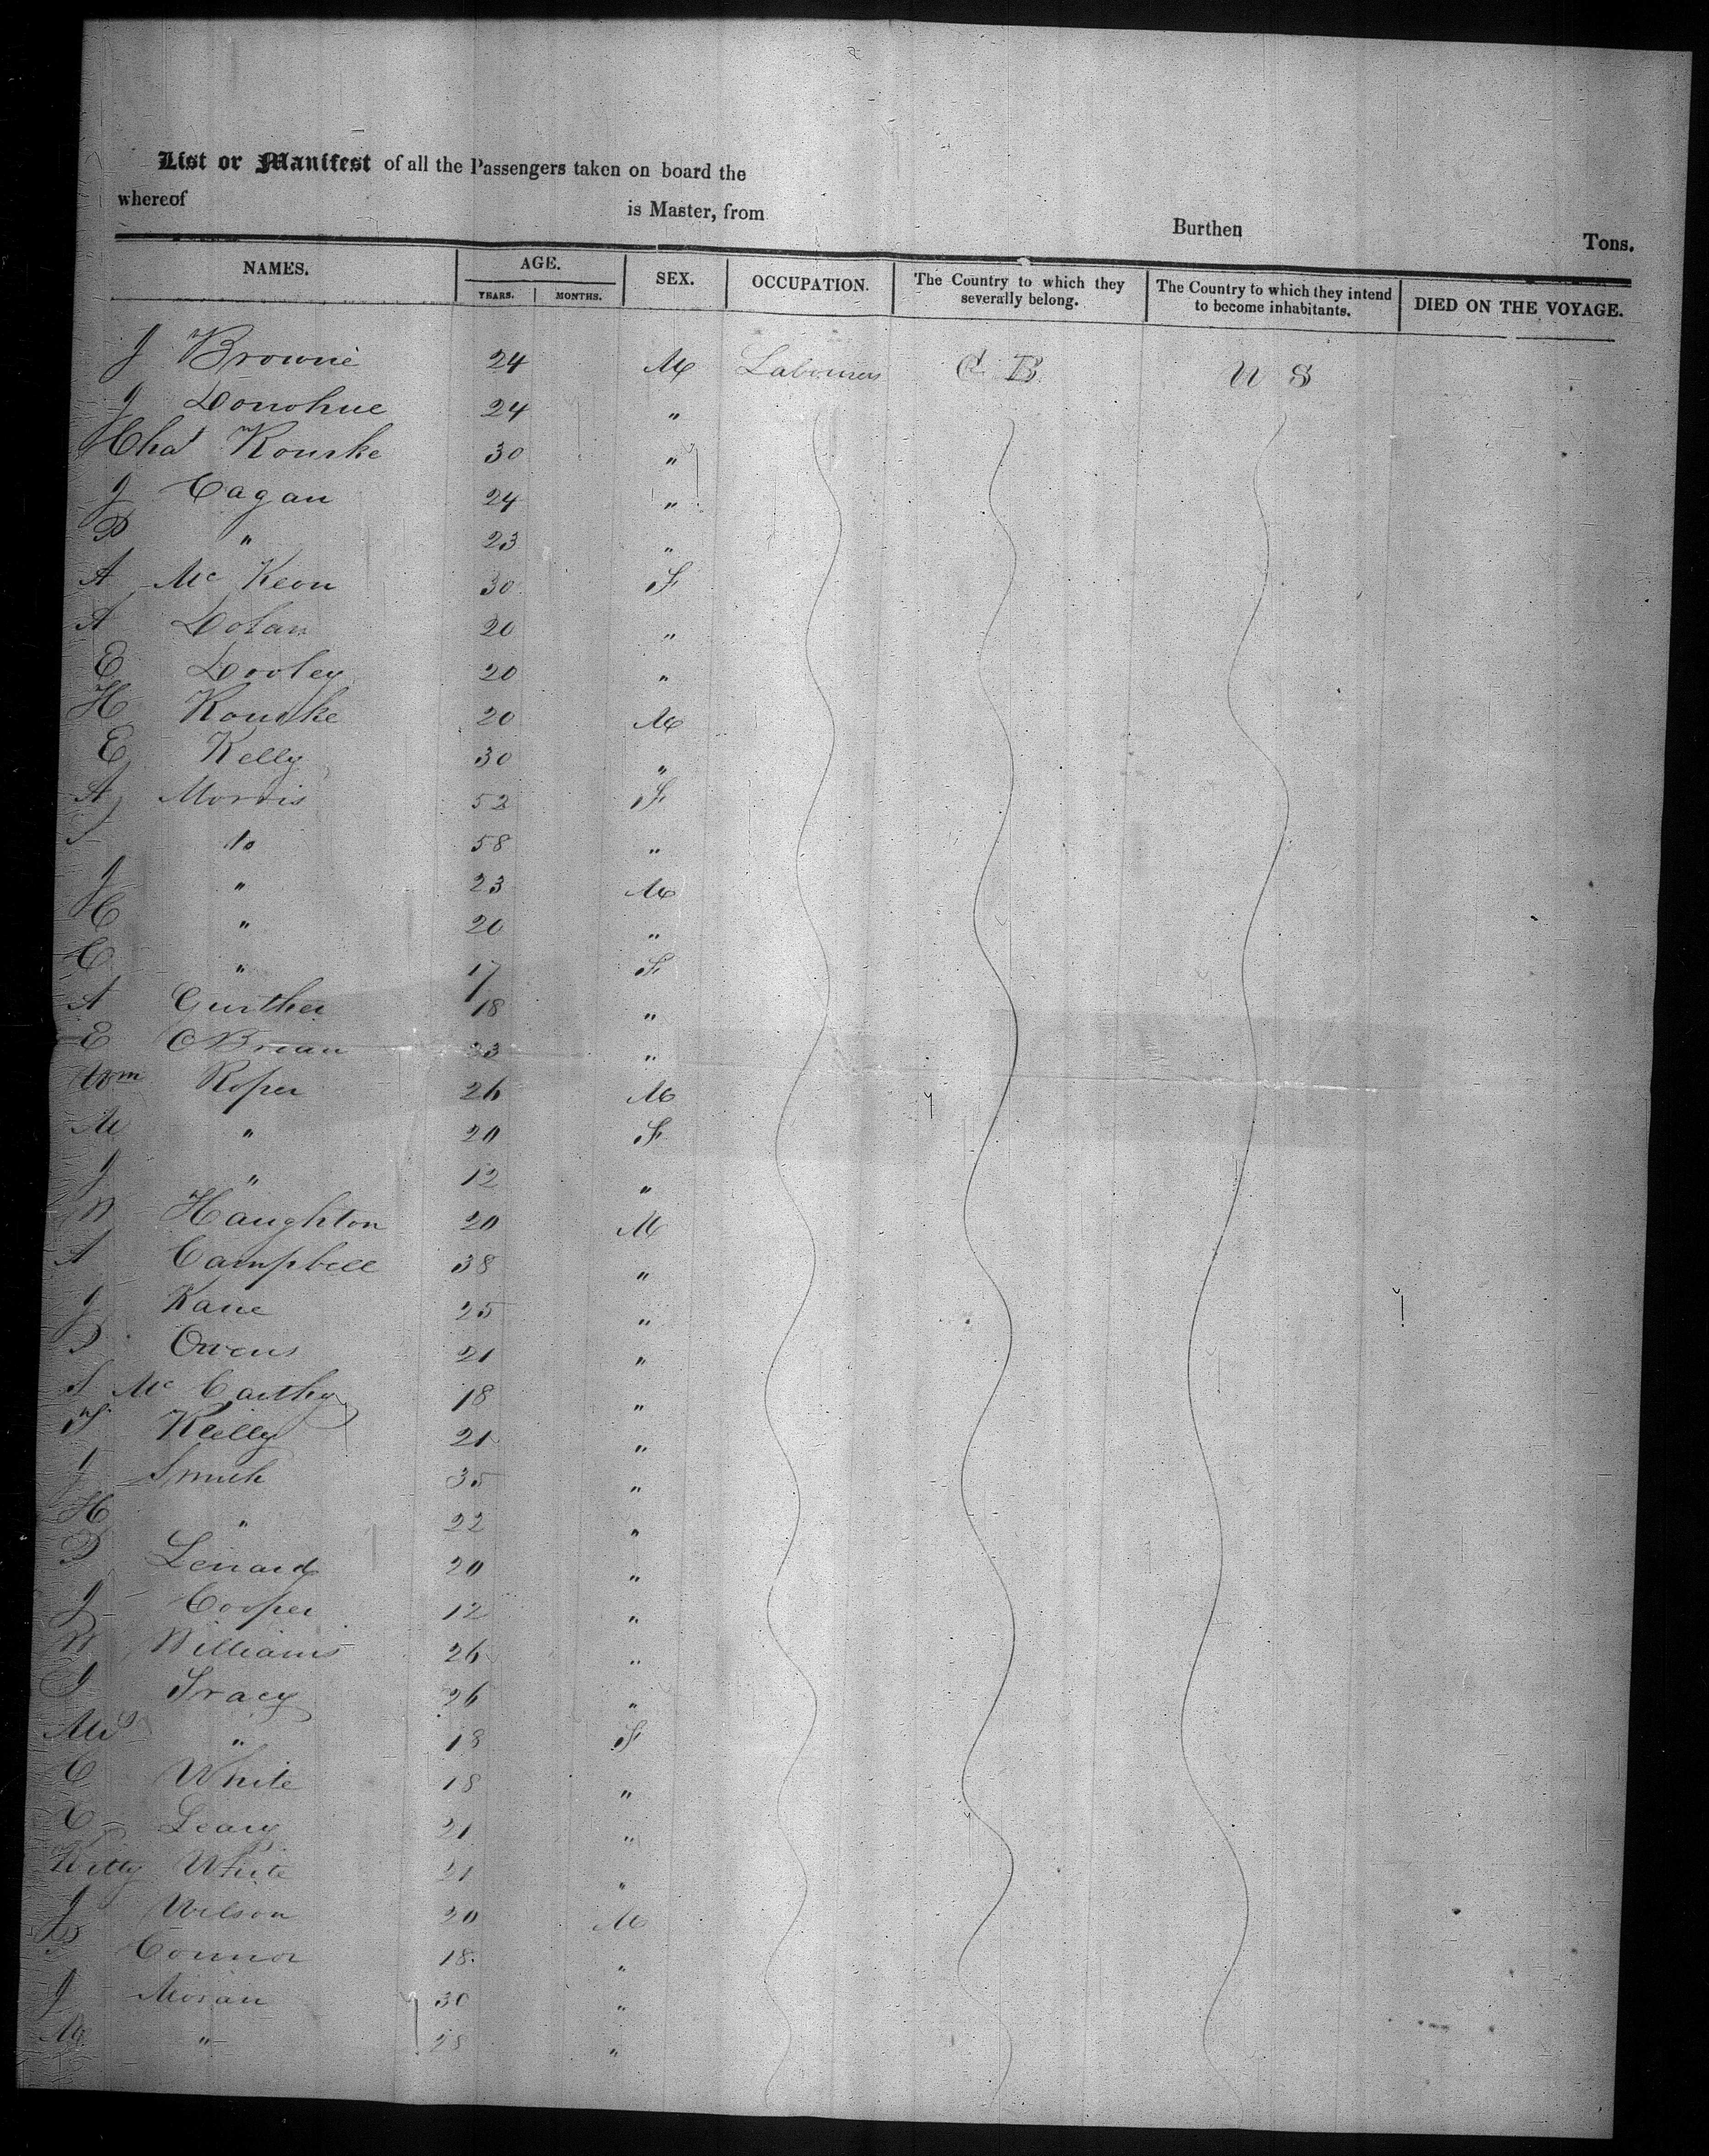 List or Manifest of all the Passengers taken on board the
whereof is Master, from Burthen Tons.
NAMES. AGE. SEX. OCCUPATION. The Country to which they severally belong. The Country to which they intend to become inhabitants. DIED ON THE VOYAGE.
YEARS. MONTHS.
J Browne 24 M Labourers G B U S
J Donohue 24 "
Chas Rourke 30 "
J Eagan 24 "
P " 23 "
A Mc Keon 30 F
A Dolan 20 "
E Dooley 20 "
H Rourke 20 M
E Kelly 30 "
A Morris 52 F
do 58 "
J " 23 M
C " 20 "
C " 17 F
A 18 "
E OBrian 23 "
Wm Roper 26 M
M " 20 F
J " 12 "
W Haughton 20 M
A Campbell 38 "
J Kane 25 "
P Owens 21 "
S Mc Carthy 18 "
21 "
J Smith 35 "
H " 22 "
P Lenard 20 "
J Cooper 12 "
W Williams 26 "
Tracy 26 "
" 18 F
C White 18 "
C Leary 21 "
Kitty White 21 "
J Wilson 20 M
P Connor 18 "
J Moran 30 "
M " 28 "